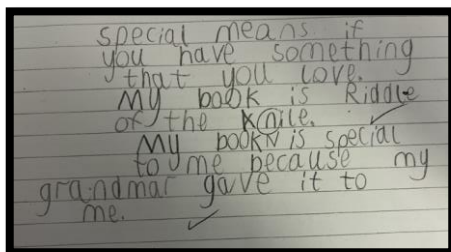 special means if
you have something
that you love.
My book is Riddle
of the Knile.
My bookN is special
to me because my
grandmar gave it to
me.